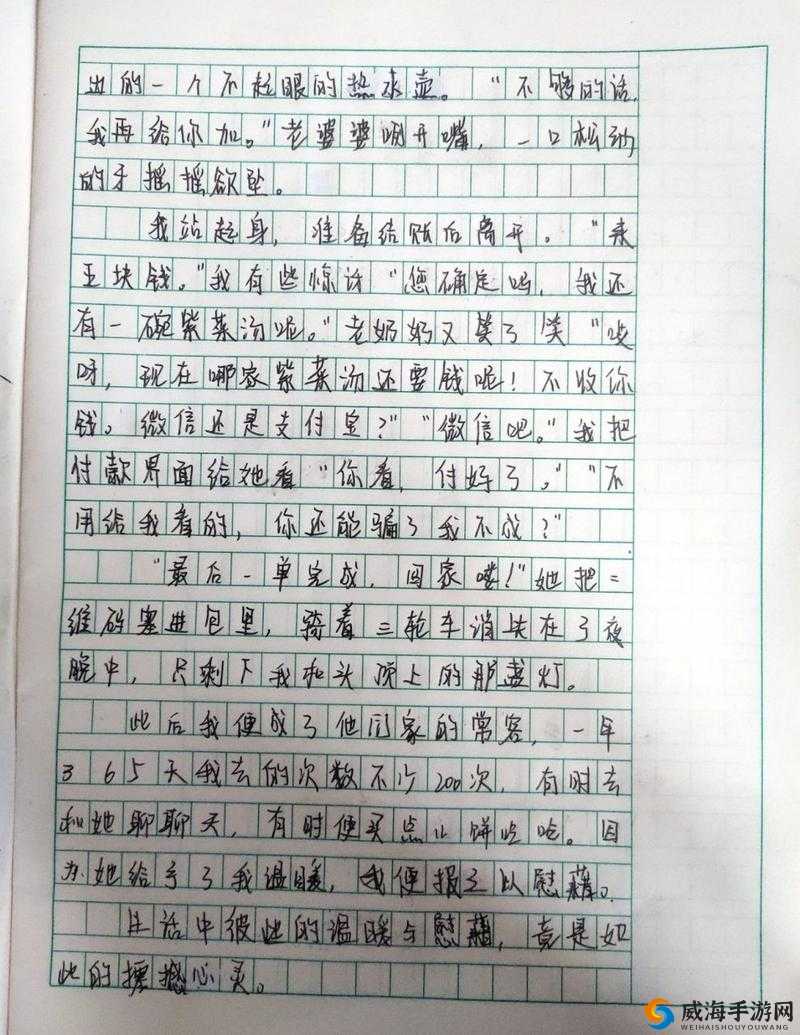 出的一个不起眼的热水壶。“不够的话,
我再给你加。”老婆婆咧开嘴，一口松动
的牙摇摇欲坠。
我站起身，准备结账后离开。“来
五块钱。”我有些惊讶“您确定吗，我还
有一碗紫菜汤呢。”老奶奶又笑了笑“哎
呀，现在哪家紫菜汤还要钱呢！不收你
钱。微信还是支付宝？”“微信吧。”我把
付款界面给她看“你看，付好了。”“不
用给我看的，你还能骗了我不成？”
“最后一单完成，回家喽！”她把二
维码塞进包里，骑着三轮车消失在了夜
晚中，只剩下我和头顶上的那盏灯。
此后我便成了他们家的常客，一年
365天我去的次数不少200次，有时去
和她聊聊天，有时便买点儿饼吃吃。因
为她给予了我温暖，我便报之以慰藉。
生活中彼此的温暖与慰藉，竟是如
此的撼心灵。
威海手游网
WEIHAISHOUYOUWANG